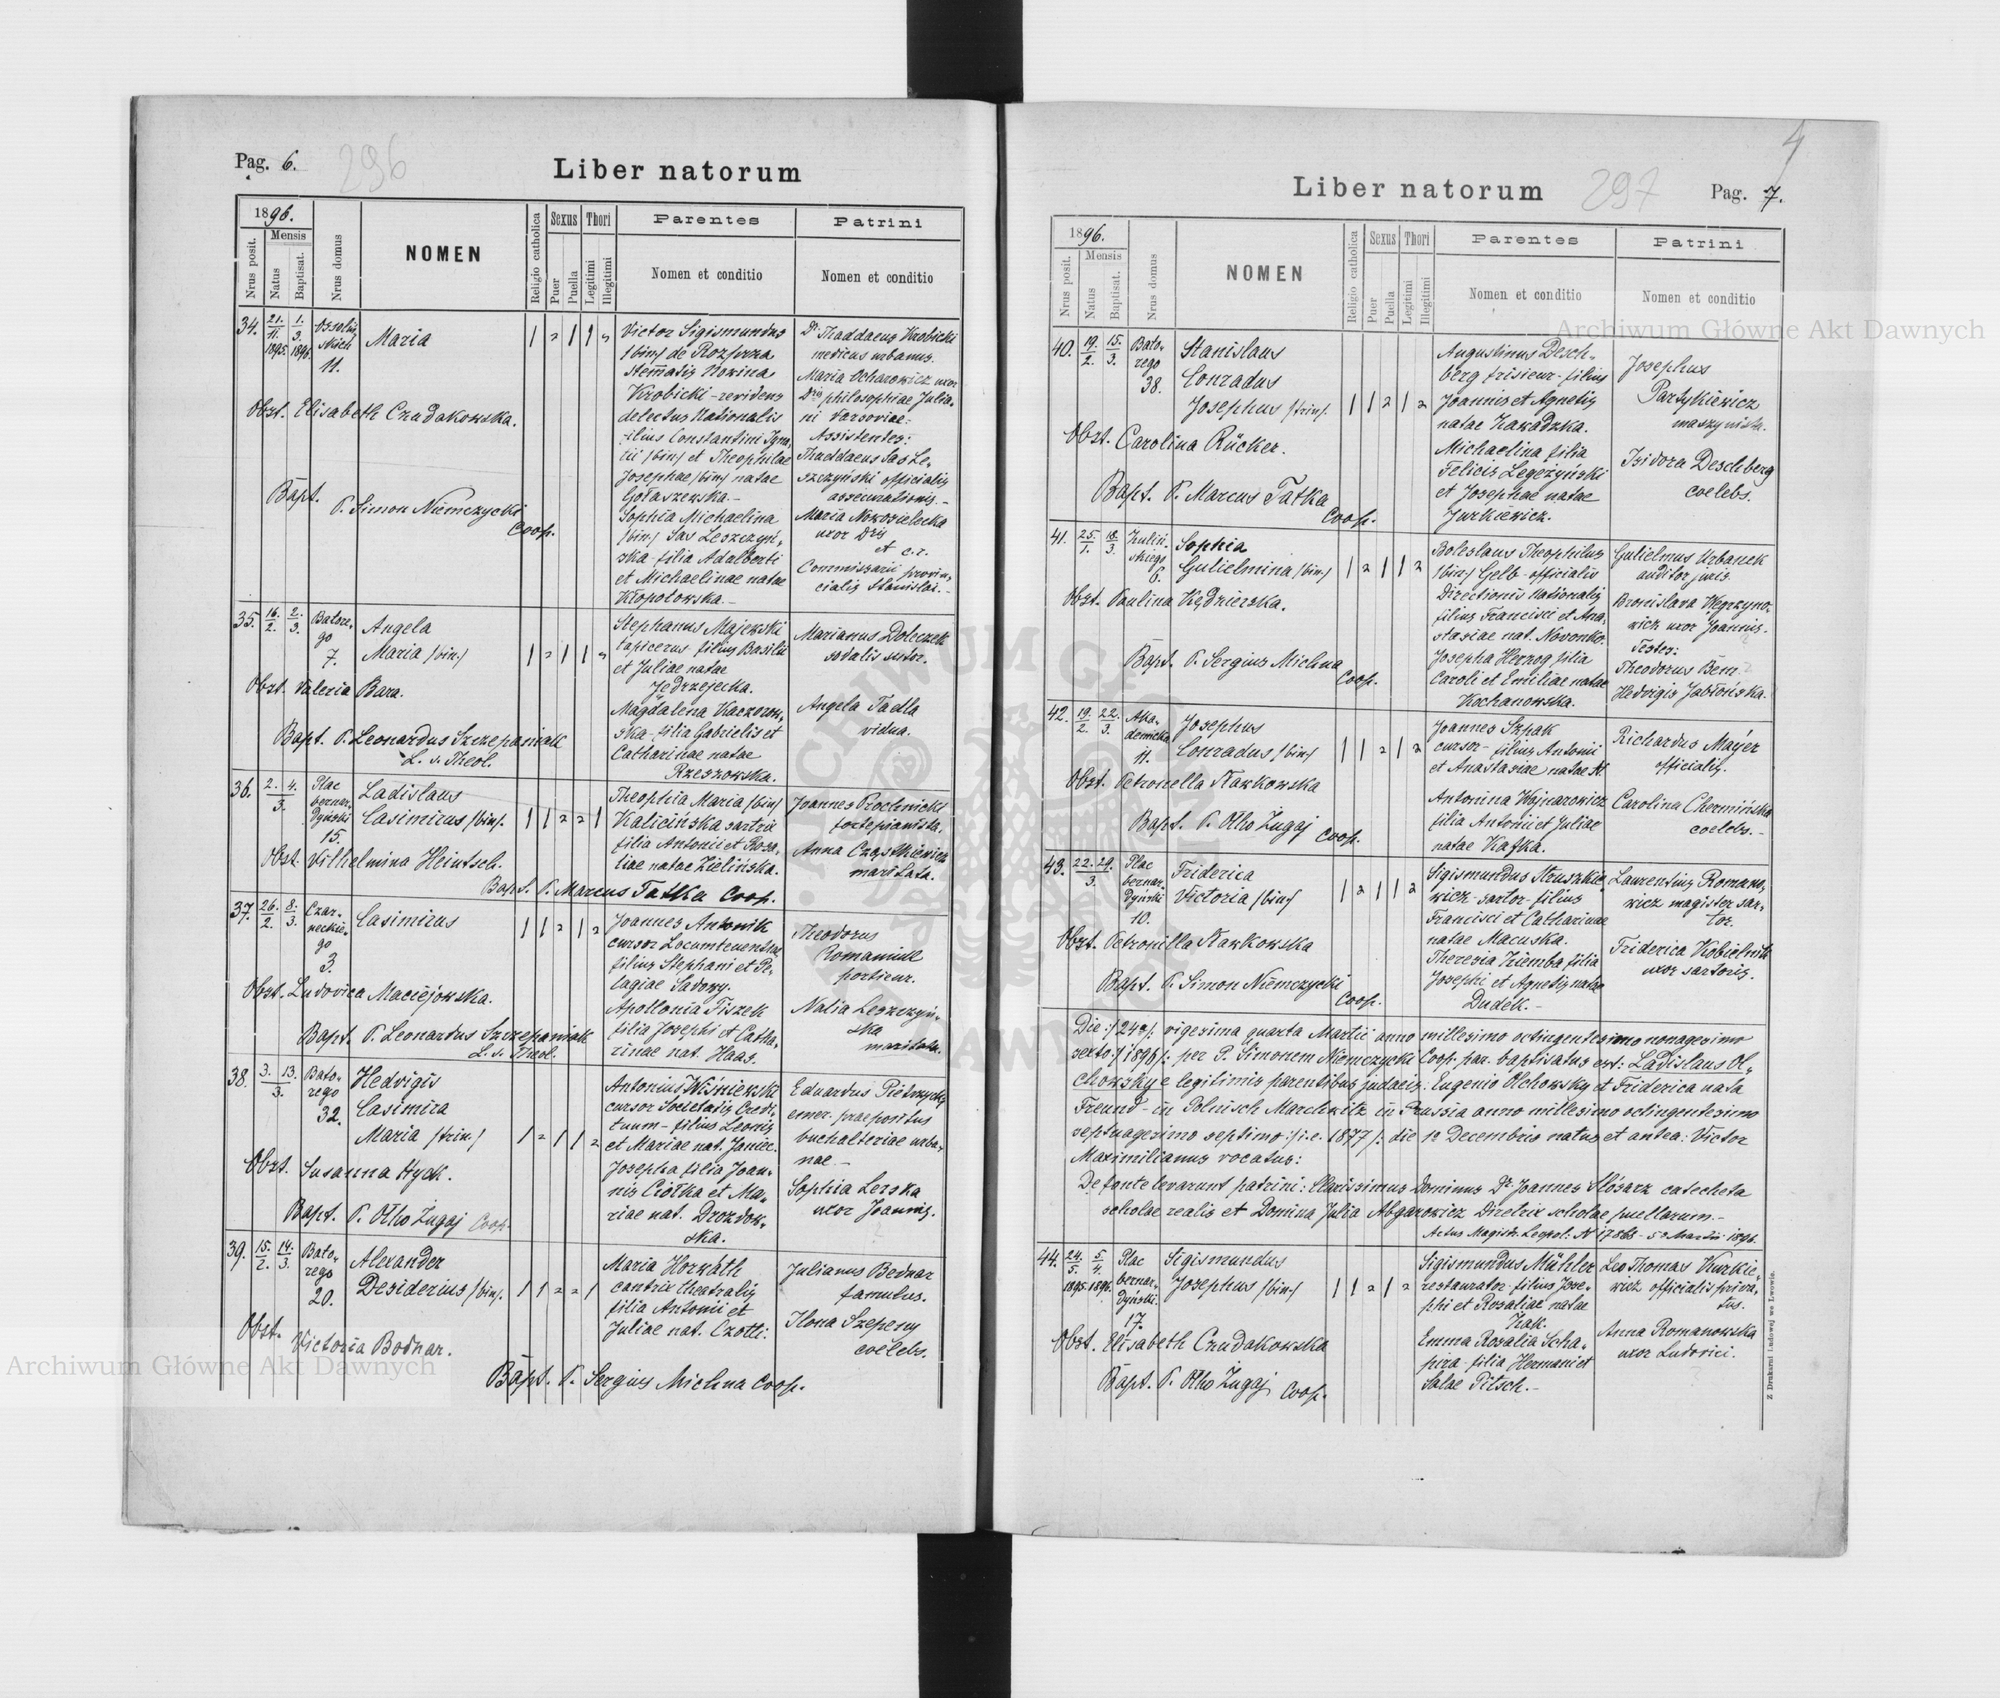 Pag. 6.
296
Liber natorum
1896.
Nrus posit.
Mensis
Natus
Baptisat.
Nrus domus
NOMEN
Religio catholica
Sexus
Puer
Puella
Thori
Legitimi
Illegitimi
Parentes
Nomen et conditio
Patrini
Nomen et conditio
34. 21./11. 1895. 1./3. 1896.
Ossoliń-
skich
11.
Maria
1 " 1 1 "
Obst. Elisabeth Czudakowska.
Bapt.
P. Simon Niemczycki
Coop.
Victor Sigismundus
/bin/ de Rozprza
stemmatis Nowina
Wrobicki - revidens
delectus Nationalis
filius Constantini Igna-
tii /bin/ et Theophilae
Josephae /bin/ natae
Gołaszewska.-
Sophia Michaelina
/bin/ Sas Leszczyń-
ska - filia Adalberti
et Michaelinae natae
Kłopotowska.-
Dr Thaddaeus Wrobicki
medicus urbanus.
Maria Ocharowicz uxor
Dris philosophiae Julia-
ni Varsoviae.
Assistentes:
Thaddaeus Sas Le-
szczyński officialis
assecurationis.-
Maria Nowosielecka
uxor Dris
et c.r.
Commissarii provin-
cialis Stanislai.-
35. 16./2. 2./3.
Batore-
go
7.
Angela
Maria /bin/
1 " 1 1 "
Obst. Valeria Bara.
Bapt. P. Leonardus Szczepaniak
L. S. Theol.
Stephanus Majewski
tapicerus filius Basilii
et Juliae natae
Jędrzejecka.
Magdalena Kaczorow-
ska - filia Gabrielis et
Catharinae natae
Rzeszowska.
Marianus Doleczek
sodalis sutor.
Angela Tadla
vidua.
36. 2. 4./3.
Plac
bernar-
dyński
15.
Ladislaus
Casimirus /bin/.
1 1 " " 1
Obst. Vilhelmina Heintsch.
Bapt. P. Marcus Tatka Coop.
Theophila Maria /bin/
Kalicińska sartrix
filia Antonii et Rosa-
liae natae Zielińska.
Joannes Prochnicki
fortepianista.
Anna Cząstkiewicz
maritata.
37. 26./2. 8./3.
Czar-
neckie-
go
3.
Casimirus
1 1 " 1 "
Obst. Ludovica Maciejowska.
Bapt. P. Leonardus Szczepaniak
L. S. Theol.
Joannes Antonik
cursor Locumtenentiae
filius Stephani et Pe-
lagiae Sadowy.
Apollonia Fiszek
filia Josephi et Catha-
rinae nat. Haas.
Theodorus
Romaniuk
portieur.
Natalia Leszczyń-
ska
maritata.
38. 3. 13./3.
Bato-
rego
32.
Hedvigis
Casimira
Maria /trin/
1 " 1 1 "
Obst. Susanna Hyck.
Bapt. P. Otho Żugaj Coop.
Antonius Wiśniewski
cursor Societatis Credi-
tuum - filius Leonis
et Mariae nat. Janiec.
Josepha filia Joan-
nis Ciołka et Ma-
riae nat. Drozdow-
ska.
Eduardus Pietrzycki
emer. praepositus
buchalteriae urba-
nae.-
Sophia Lerska
uxor Joannis.
39. 15./2. 14./3.
Bato-
rego
20.
Alexander
Desiderius /bin/.
1 1 " " 1
Obst.
Victoria Bodnar.
Bapt. P. Sergius Michna Coop.
Maria Horwáth
cantrix theatralis
filia Antonii et
Juliae nat. Czotti.
Julianus Bednar
famulus.
Ilona Szepeny
coelebs.
4
Liber natorum
297
Pag. 7.
1896.
Nrus posit.
Mensis
Natus
Baptisat.
Nrus domus
NOMEN
Religio catholica
Sexus
Puer
Puella
Thori
Legitimi
Illegitimi
Parentes
Nomen et conditio
Patrini
Nomen et conditio
40. 19./2. 15./3.
Bato-
rego
38.
Stanislaus
Conradus
Josephus /trin/.
1 1 " 1 "
Obst. Carolina Rücker.
Bapt. P. Marcus Tatka
Coop.
Augustinus Desch-
berg frisieur - filius
Joannis et Agnetis
natae Zawadzka.
Michaelina filia
Felicis Legeżyński
et Josephae natae
Jurkiewicz.
Josephus
Partykiewicz
maszynista.
Isidora Deschberg
coelebs.
41. 25./1. 18./3.
Zuliń-
skiego
6.
Sophia
Gulielmina /bin/
1 " 1 1 "
Obst. Paulina Kędzierska.
Bapt. P. Sergius Michna
Coop.
Boleslaus Theophilus
/bin/ Gelb - officialis
Directionis Nationalis
filius Francisci et Ana-
stasiae nat. Novonko.
Josepha Herzog filia
Caroli et Emiliae natae
Kochanowska.
Gulielmus Urbanek
auditor juris.
Bronislava Węgrzyno-
wicz uxor Joannis.
Testes:
Theodorus Bem.
Hedvigis Jabłońska.
42. 19./2. 22./3.
Aka-
demicka
11.
Josephus
Conradus /bin/
1 1 " 1 "
Obst. Petronella Nawkowska
Bapt. P. Otho Żugaj Coop.
Joannes Szpak
cursor - filius Antonii
et Anastasiae natae N.
Antonina Wojnarowicz
filia Antonii et Juliae
natae Kafka.
Richardus Mayer
officialis.
Carolina Chermińska
coelebs.-
43. 22. 29./3.
Plac
bernar-
dyński
10.
Friderica
Victoria /bin/
1 " 1 1 "
Obst. Petronilla Nawkowska
Bapt. P. Simon Niemczycki
Coop.
Sigismundus Struszkie-
wicz - sartor - filius
Francisci et Catharinae
natae Macuska.
Theresia Ziemba filia
Josephi et Agnetis natae
Dudek.-
Laurentius Romano-
wicz magister sar-
tor.
Friderica Kobielnik
uxor sartoris.
Die :/24a/: vigesima quarta Martii anno millesimo octingentesimo nonagesimo
sexto :/1896/: per P. Simonem Niemczycki Coop. par. baptisatus est: Ladislaus Ol-
chowsky e legitimis parentibus judaeis: Eugenio Olchowsky et Friderica nata
Freund - in Polnisch Marchwitz in Prussia anno millesimo octingentesimo
septuagesimo septimo :/i.e. 1877/: die 12 Decembris natus et antea: Victor
Maximilianus vocatus:
De fonte levarunt patrini: Clarissimus Dominus Dr. Joannes Ślósarz catecheta
scholae realis et Domina Julia Abgarowicz Diretrix scholae puellarum.-
Actus Magistr. Leopol. N 17868 - 5a Martii 1896.
44. 24./5. 1895. 5/4. 1896.
Plac
bernar-
dyński.
17.
Sigismundus
Josephus /bin/
1 1 " 1 "
Obst. Elisabeth Czudakowska
Bapt. P. Otho Żugaj Coop.
Sigismundus Mühler
restaurator - filius Jose-
phi et Rosaliae natae
Żak.
Emma Rosalia Scha-
pira - filia Hermani et
Salae Pitsch.-
Leo Thomas Kurkie-
wicz officialis priva-
tus.
Anna Romanowska
uxor Ludovici.
Z Drukarni Ludowej we Lwowie.
Archiwum Główne Akt Dawnych
Archiwum Główne Akt Dawnych
ARCHIWUM GŁÓWNE AKT DAWNYCH